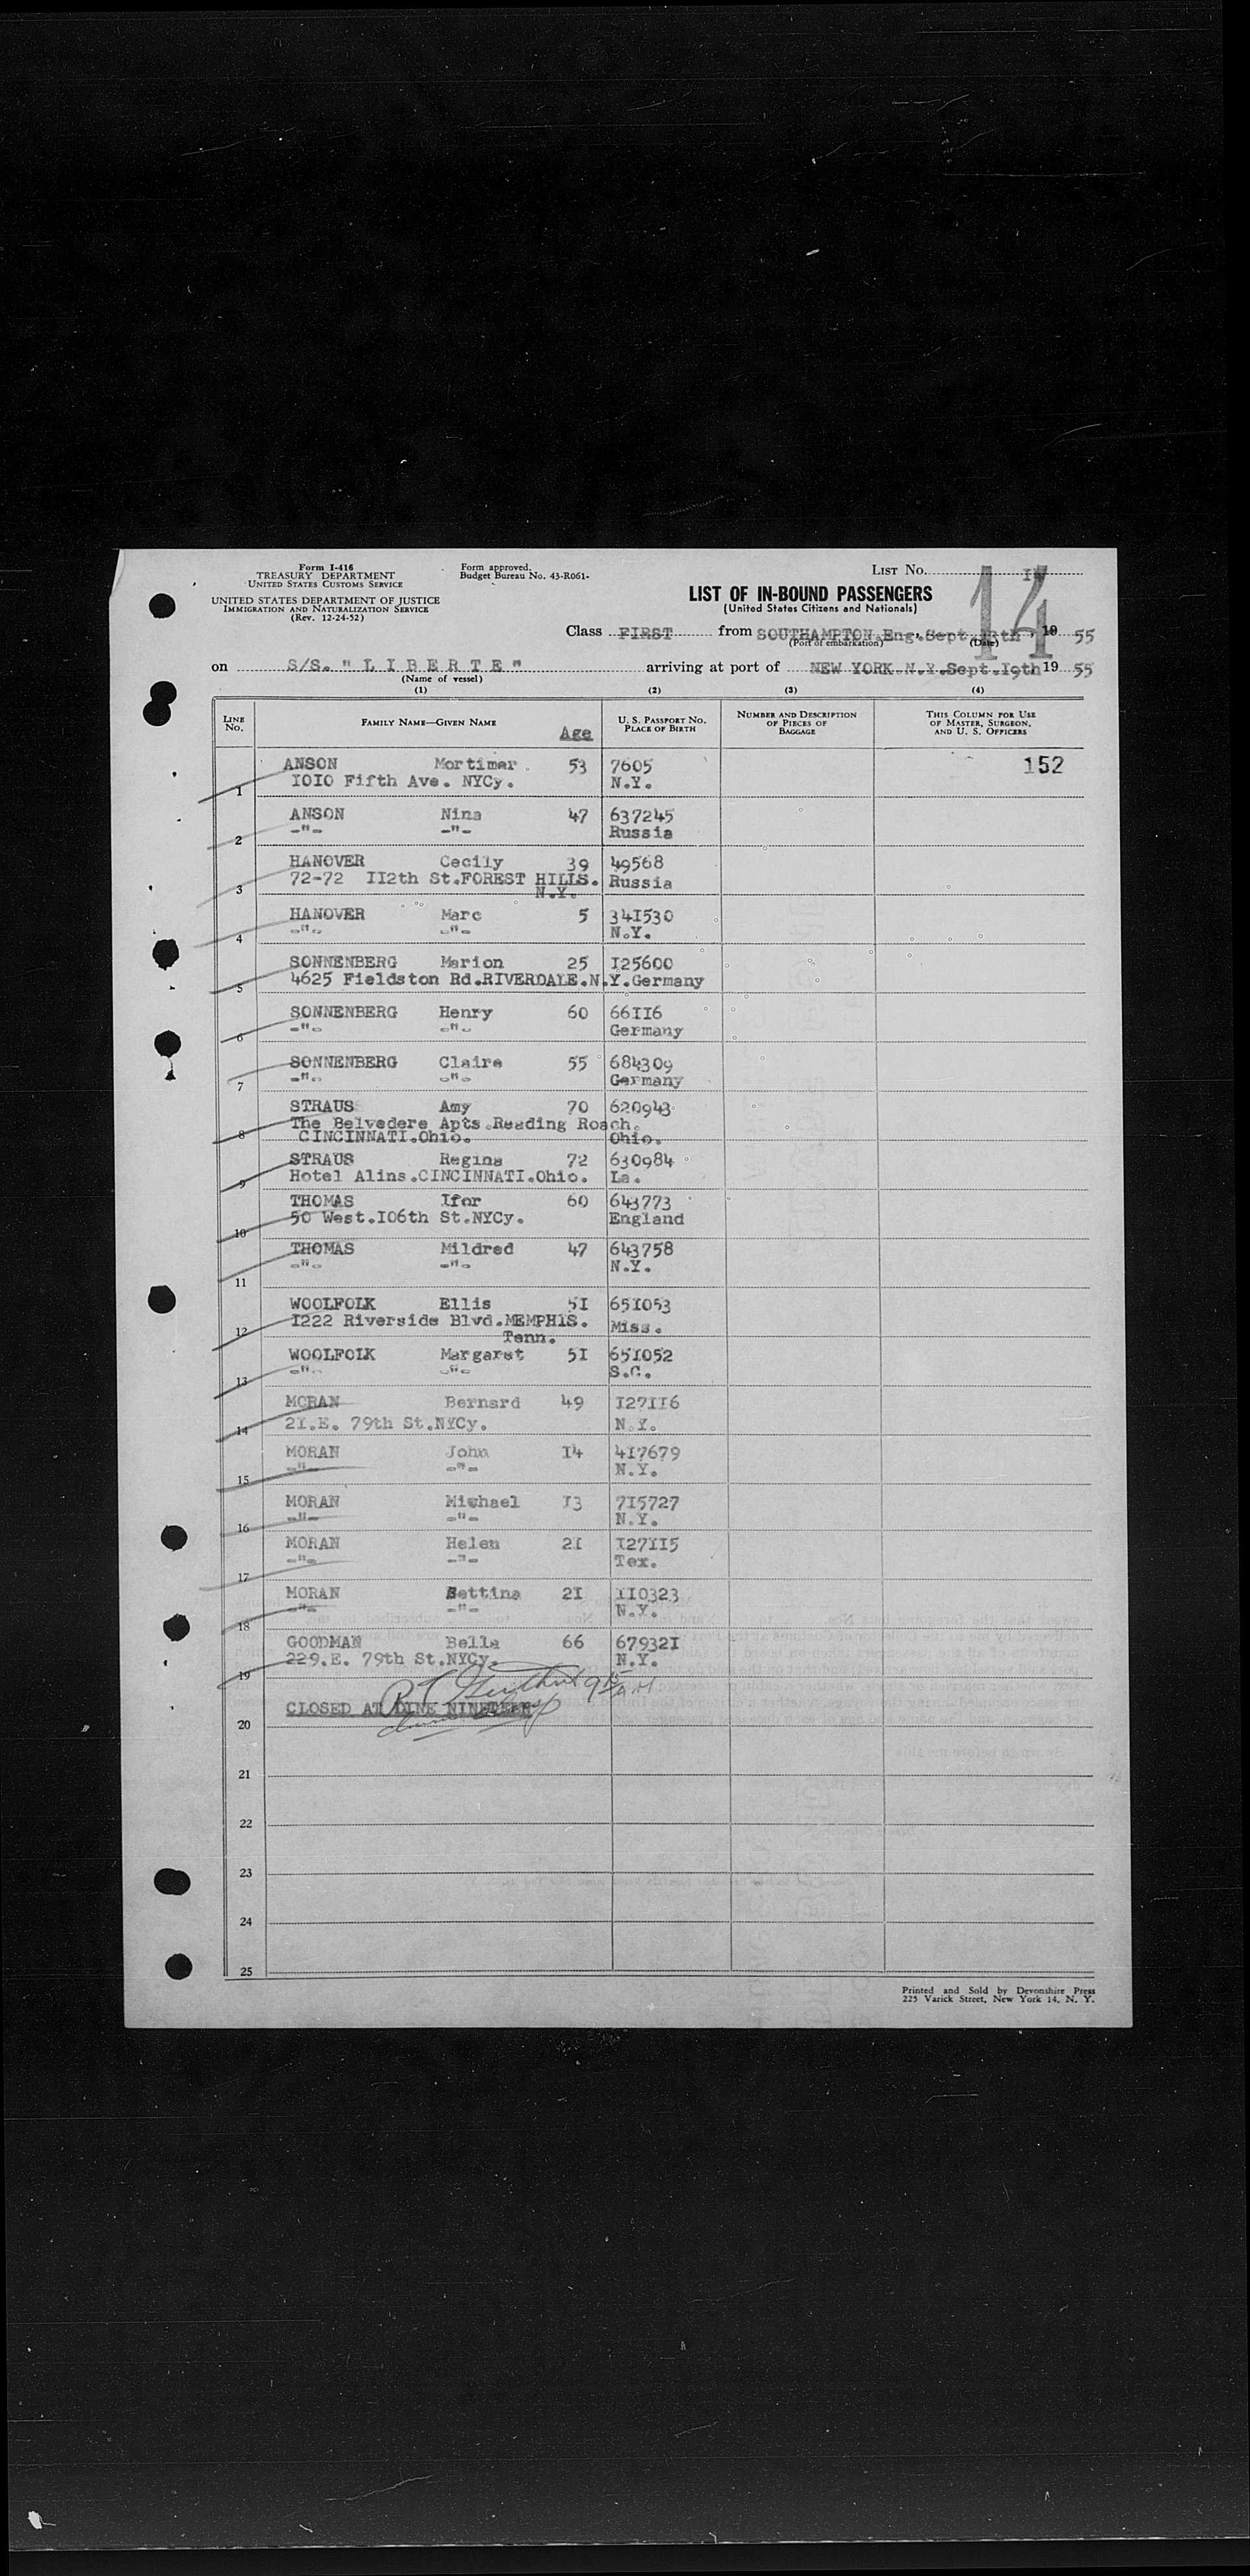 Form I-416
TREASURY DEPARTMENT
UNITED STATES CUSTOMS SERVICE
UNITED STATES DEPARTMENT OF JUSTICE
IMMIGRATION AND NATURALIZATION SERVICE
(Rev. 12-24-52)
Form approved.
Budget Bureau No. 43-R061-
LIST No.
14
LIST OF IN-BOUND PASSENGERS
(United States Citizens and Nationals)
Class FIRST from SOUTHAMPTON.Eng.Sept., 19 55
(Port of embarkation) (Date)
on S/S. " L I B E R T E " arriving at port of NEW YORK.N.Y.Sept.I9th 19 55
(Name of vessel)
(1) (2) (3) (4)
LINE No. FAMILY NAME—GIVEN NAME Age U. S. PASSPORT NO. PLACE OF BIRTH NUMBER AND DESCRIPTION OF PIECES OF BAGGAGE THIS COLUMN FOR USE OF MASTER, SURGEON, AND U. S. OFFICERS
152
ANSON Mortimer. 53 7605
1 IOIO Fifth Ave. NYCy. N.Y.
ANSON Nina 47 637245
2 -"- -"- Russia
HANOVER Cecily 39 49568
3 72-72 II2th St.FOREST HILLS. Russia
N.Y.
HANOVER Marc 5 34I530
4 -"- -"- N.Y.
SONNENBERG Marion 25 I25600
5 4625 Fieldston Rd.RIVERDALE.N.Y.Germany
SONNENBERG Henry 60 66II6
6 -"- -"- Germany
SONNENBERG Claire 55 684309
7 -"- -"- Germany
STRAUS Amy 70 620943
The Belvedere Apts.Reading Roach.
8 CINCINNATI.Ohio. Ohio.
STRAUS Regina 72 630984
9 Hotel Alins.CINCINNATI.Ohio. La.
THOMAS Ifor 60 643773
10 50 West.I06th St.NYCy. England
THOMAS Mildred 47 643758
11 -"- -"- N.Y.
WOOLFOLK Ellis 5I 65I053
12 I222 Riverside Blvd.MEMPHIS. Miss.
Tenn.
WOOLFOLK Margaret 5I 65I052
13 -"- -"- S.C.
MORAN Bernard 49 I27II6
14 2I.E. 79th St.NYCy. N.Y.
MORAN John I4 4I7679
15 -"- -"- N.Y.
MORAN Michael I3 7I5727
16 -"- -"- N.Y.
MORAN Helen 2I I27II5
17 -"- -"- Tex.
MORAN Bettina 2I II0323
18 -"- -"- N.Y.
GOODMAN Bella 66 67932I
19 229.E. 79th St.NYCy. N.Y.
20 CLOSED AT LINE NINETEEN
21
22
23
24
25
Printed and Sold by Devonshire Press
225 Varick Street, New York 14, N. Y.